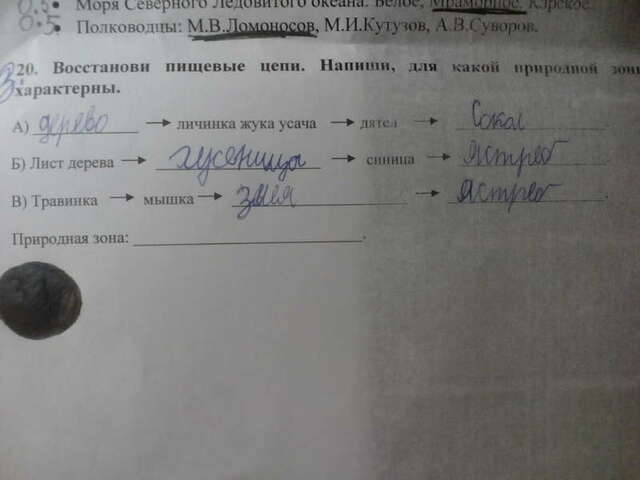 0.5 • Моря Северного Ледовитого океана: Белое, Мраморное, Карское.
0.5 • Полководцы: М.В.Ломоносов, М.И.Кутузов, А.В.Суворов.
3 20. Восстанови пищевые цепи. Напиши, для какой природной зоны
характерны.
А) дерево → личинка жука усача → дятел → Сокол
Б) Лист дерева → гусеница → синица → ястреб.
В) Травинка → мышка → змея → ястреб.
Природная зона: .